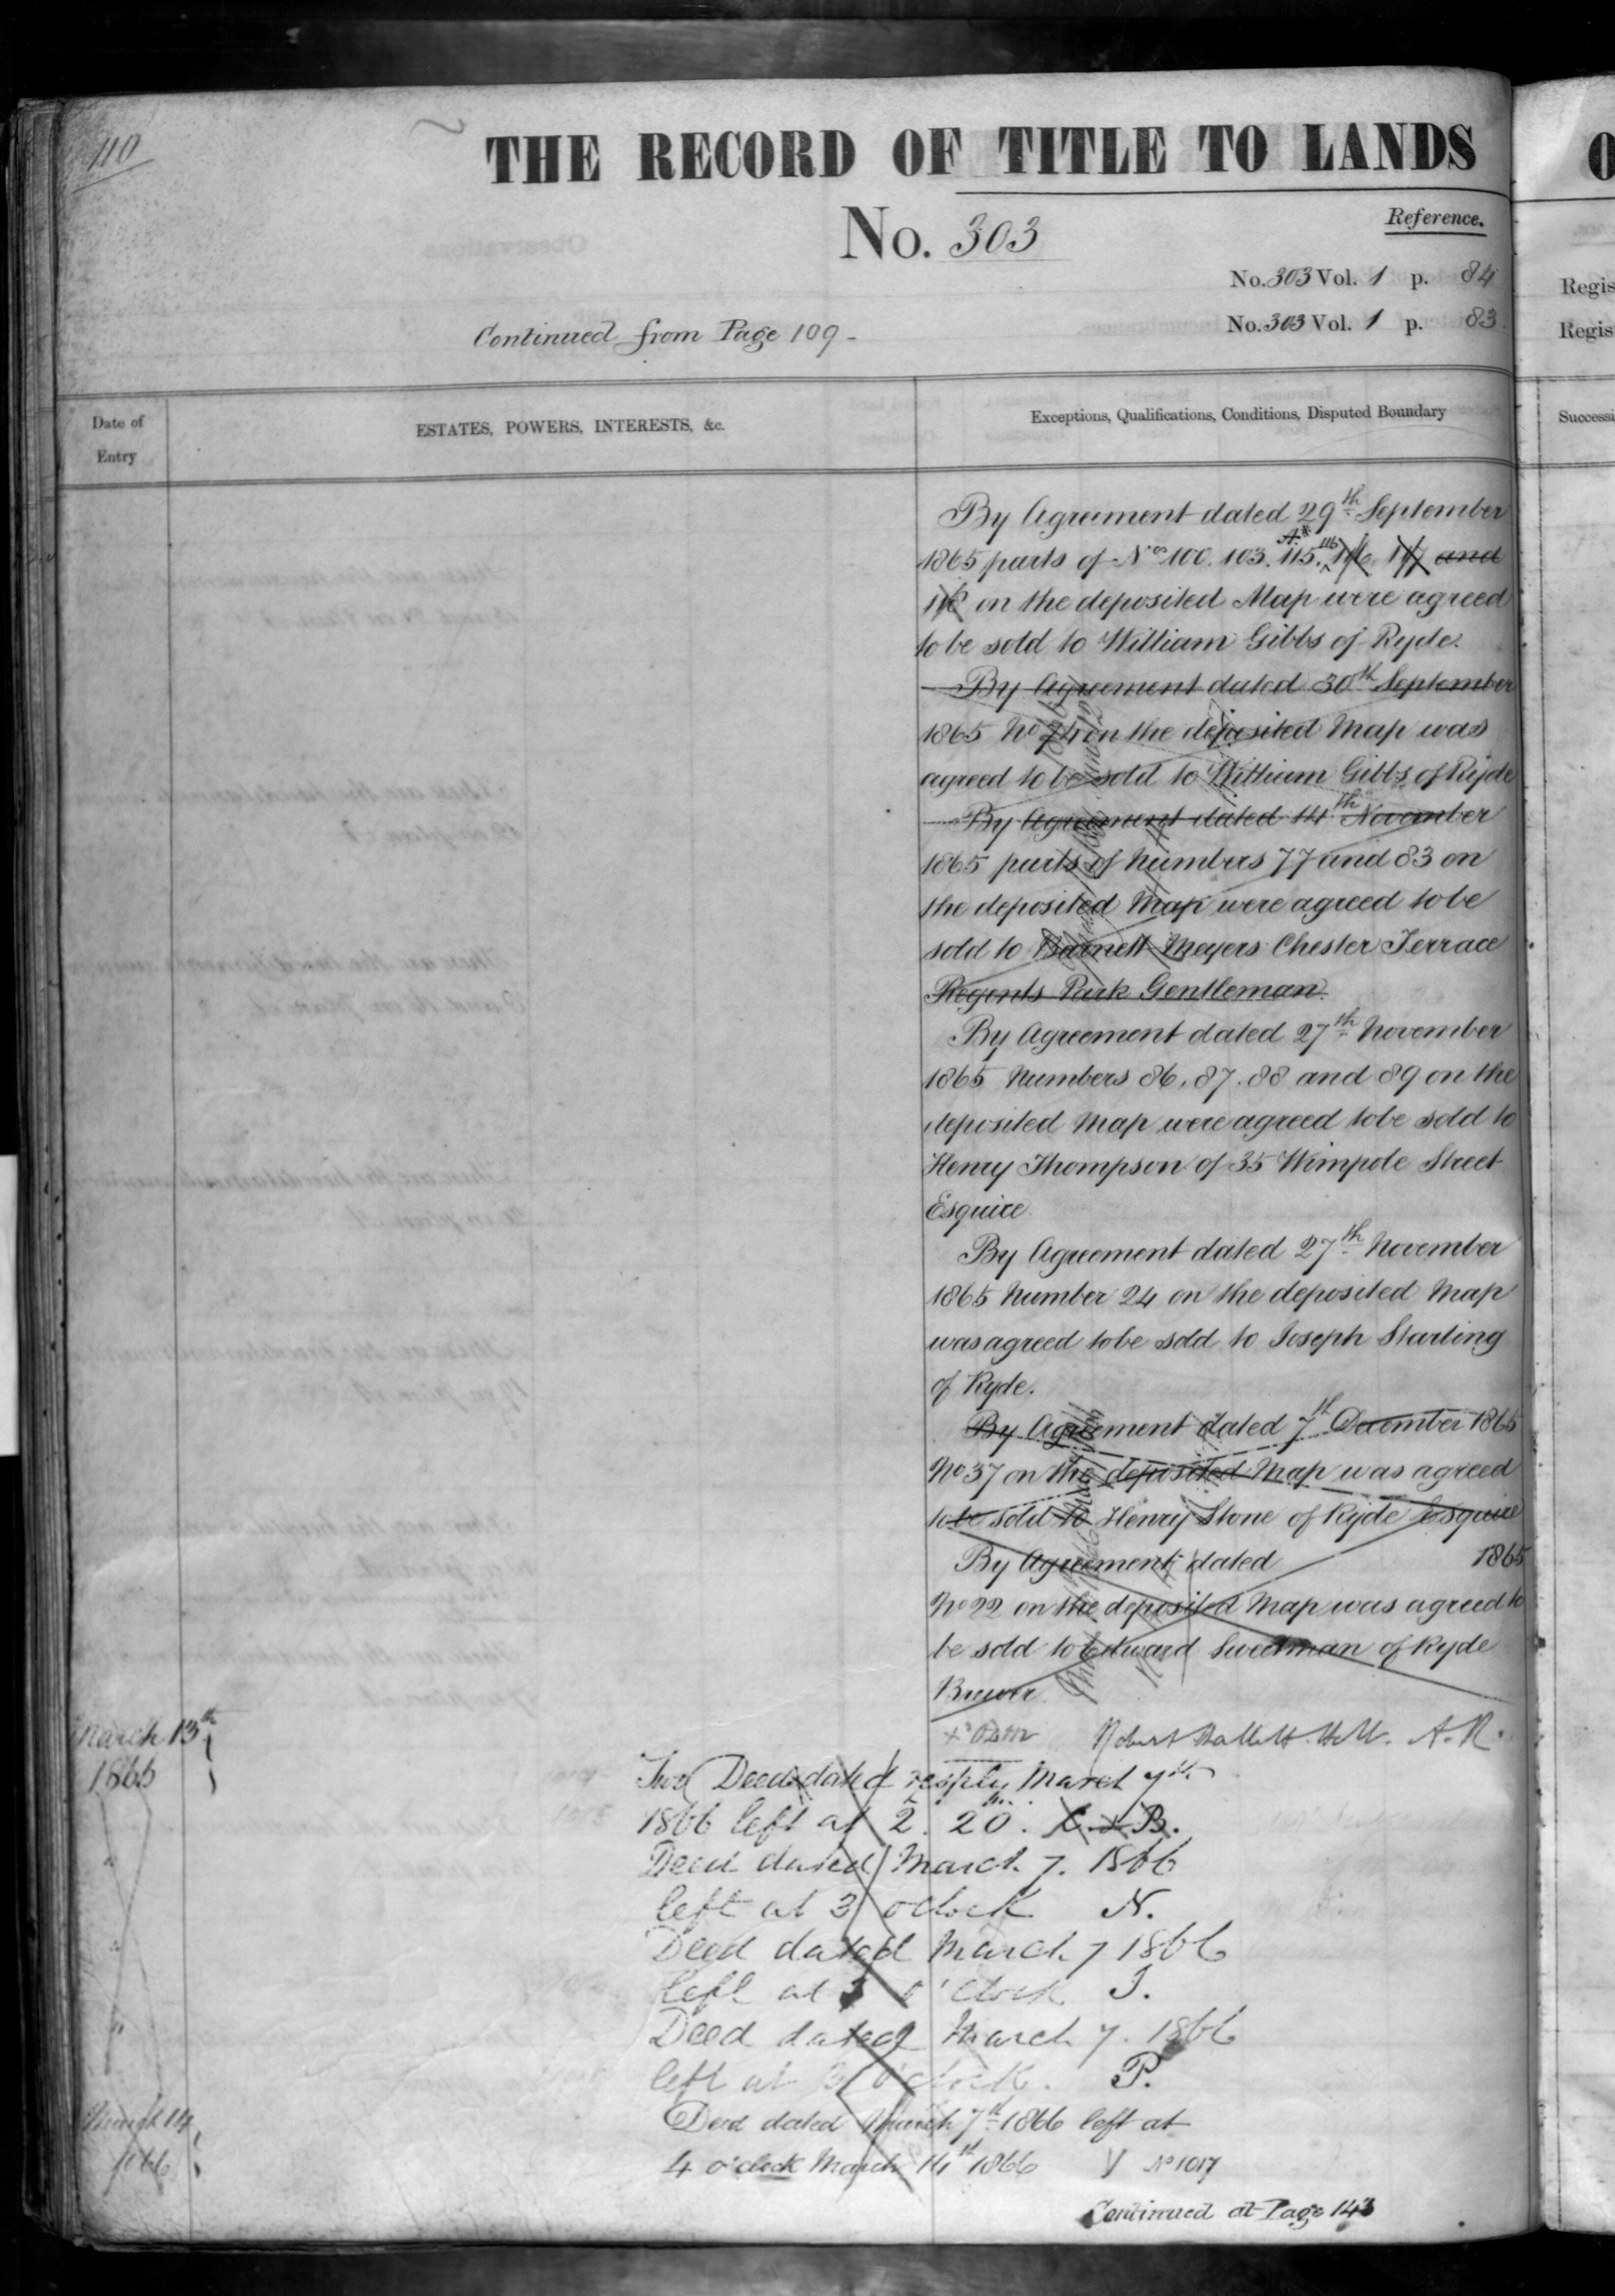 110
THE RECORD OF TITLE TO LANDS
No. 303
Reference.
No. 303 Vol. 1 p. 84
No. 303 Vol. 1 p. 83
Continued from Page 109 -
Date of Entry
ESTATES, POWERS, INTERESTS, &c.
Exceptions, Qualifications, Conditions, Disputed Boundary
By Agreement dated 29th September
1865 parts of Nos 100. 103. 115. 116 116. 117 and
118 on the deposited Map were agreed
to be sold to William Gibbs of Ryde.
By Agreement dated 30th September
1865 No 74 on the deposited Map was
agreed to be sold to William Gibbs of Ryde
By Agreement dated 14th November
1865 parts of Numbers 77 and 83 on
the deposited Map were agreed to be
sold to Barnett Meyers Chester Terrace
Regents Park Gentleman.
By Agreement dated 27th November
1865 Numbers 86. 87. 88 and 89 on the
deposited Map were agreed to be sold to
Henry Thompson of 35 Wimpole Street
Esquire
By Agreement dated 27th November
1865 Number 24 on the deposited Map
was agreed to be sold to Joseph Starling
of Ryde.
By Agreement dated 7th December 1865
No 37 on the deposited Map was agreed
to be sold to Henry Stone of Ryde Esquire
By Agreement dated 1865
No 22 on the deposited Map was agreed to
be sold to Edward Sweetman of Ryde
Brewer
Robert Hallett Holt. A.R.
March 13th
1866
Two Deeds dated respty March 7th
1866 left at 2. 20. C & B.
Deed dated March 7. 1866
left at 3 o'clock N.
Deed dated March 7 1866
left at 3 o'clock I.
Deed dated March 7. 1866
left at 3 o'clock. P.
March 14
1866
Deed dated March 7th 1866 left at
4 o'clock March 14th 1866 V No 1017
Continued at Page 143
O
Regis
Regis
Successi